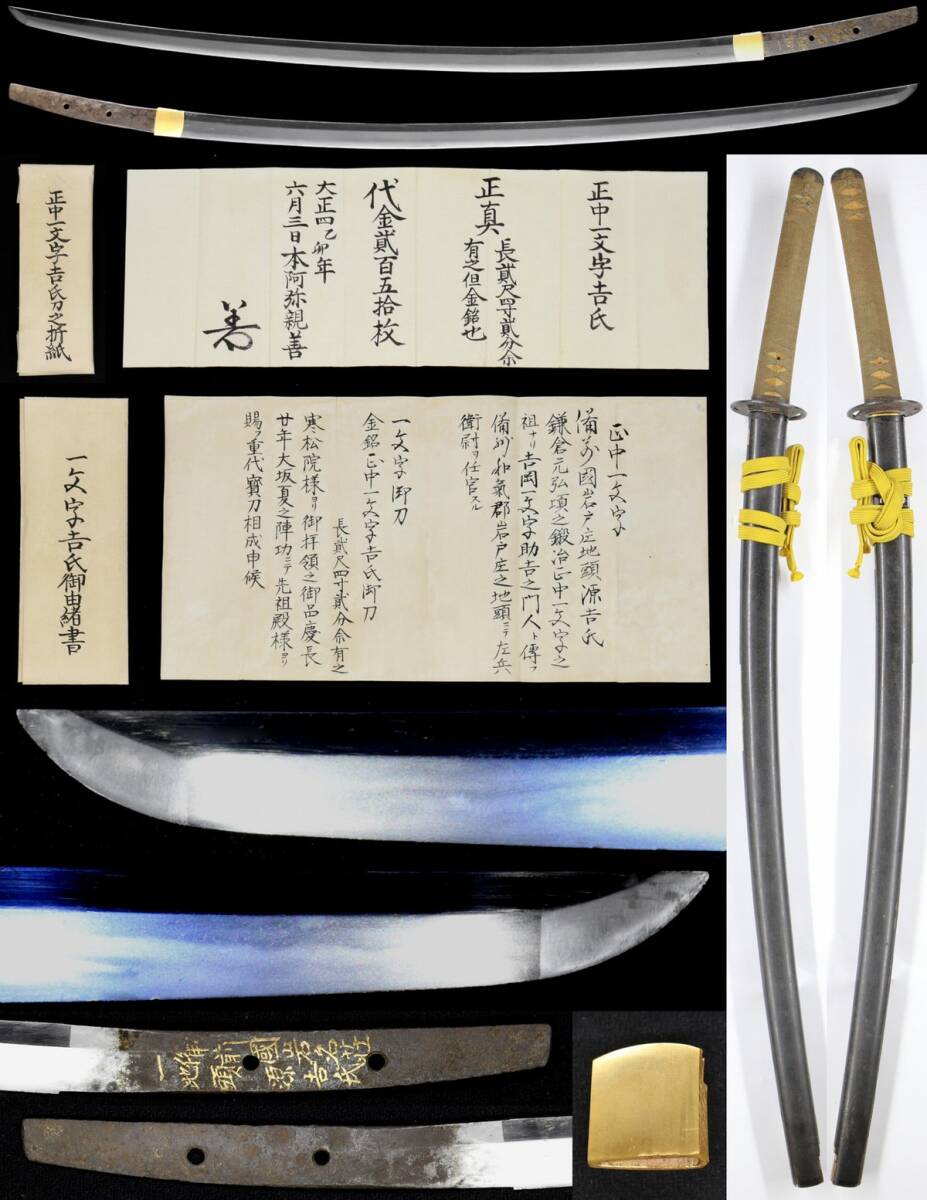 正中一文字吉氏刀之折紙
正中一文字吉氏
正真
長貳尺四寸貳分余
有之但金銘也
代金貳百五拾枚
大正四乙卯年
六月三日本阿弥親善
善
一文字吉氏御由緒書
正中一文字
備前國岩戸庄地頭源吉氏
鎌倉元弘頃之鍛冶正中一文字之
祖ナリ吉岡一文字助吉之門人ト傳フ
備前和氣郡岩戸庄之地頭ニテ左兵
衛尉ヲ任官スル
一文字御刀
金銘正中一文字吉氏御刀
長貳尺四寸貳分余有之
寒松院様ヨリ御拝領之御品慶長
廿年大坂夏之陣功ニテ先祖殿様ヨリ
賜フ重代寳刀相成申候
一
備前國岩名
地頭源吉氏